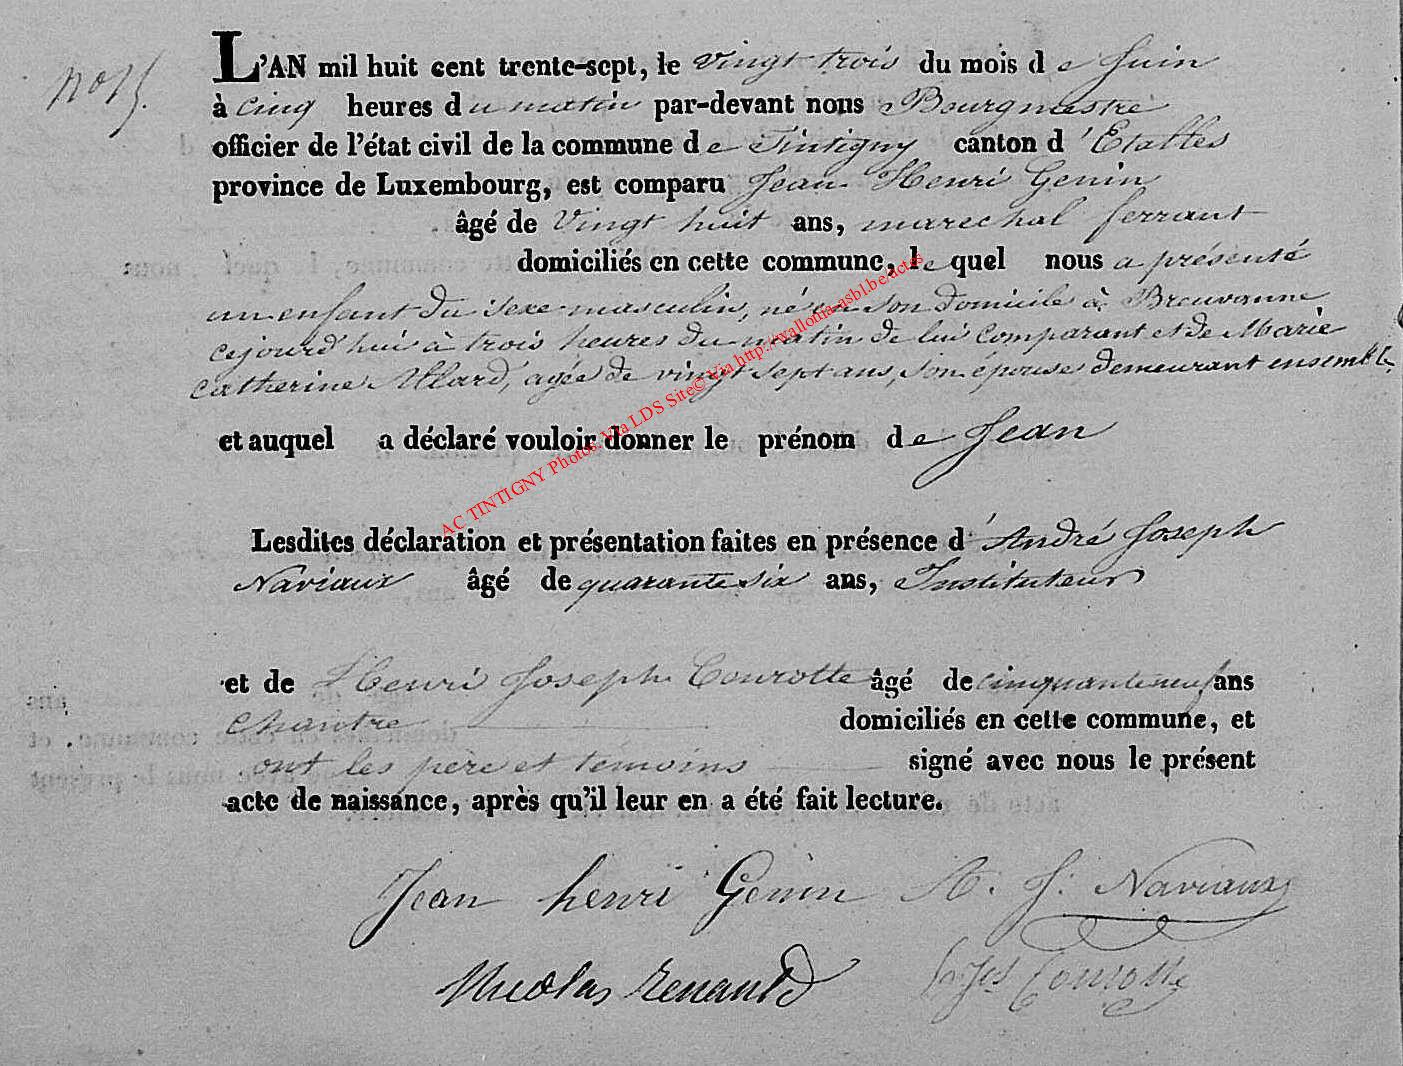 L'AN mil huit cent trente-sept, le vingt trois du mois de Juin
à cinq heures du matin par-devant nous Bourgmestre
officier de l'état civil de la commune de Tintigny canton d'Etalles
province de Luxembourg, est comparu Jean Henri Genin
âgé de Vingt huit ans, marechal ferrant
domiciliés en cette commune, le quel nous a présenté
un enfant du sexe masculin, né en son domicile à Breuvanne
cejourd'hui à trois heures du matin de lui comparant et de Marie
Catherine Allard, agée de vingt sept ans, son épouse demeurant ensemble
et auquel a déclaré vouloir donner le prénom de Jean
Lesdites déclaration et présentation faites en présence d'André Joseph
Naviaux âgé de quarante six ans, Instituteur
et de Henri Joseph Courotte âgé de cinquanteneuf ans
Chantre domiciliés en cette commune, et
ont les père et témoins signé avec nous le présent
acte de naissance, après qu'il leur en a été fait lecture.
Jean henri Genin A. J. Naviaux
Nicolas Renauld Courotte
AC TINTIGNY Photos. Via LDS Site© Via http://wallonia-asbl.be/actes